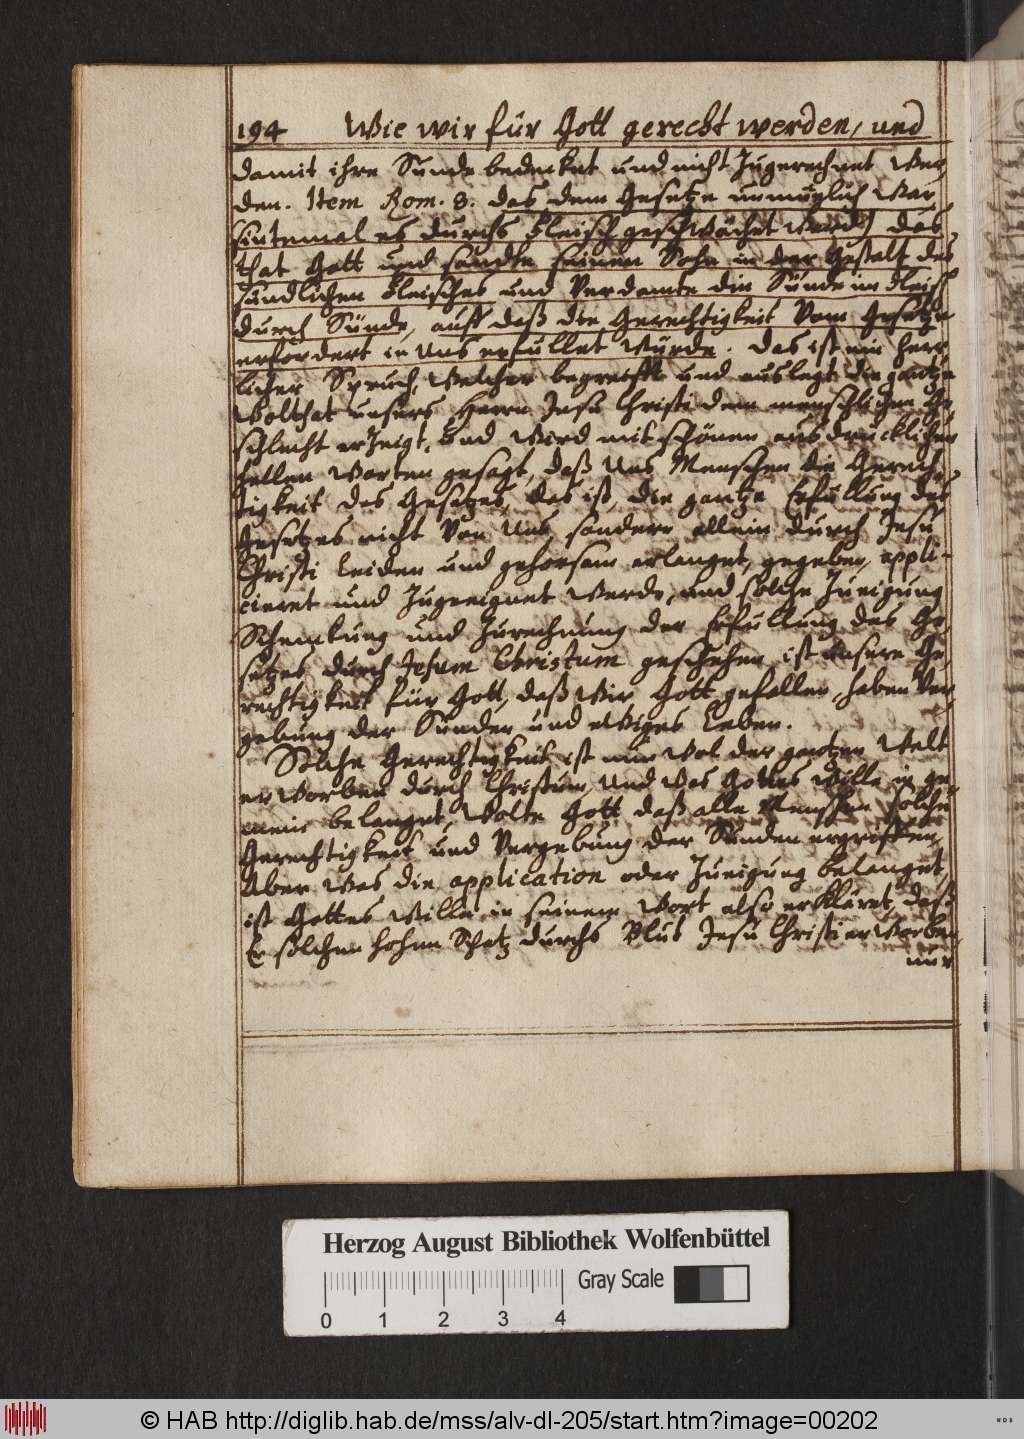 194 Wie wir für Gott gerecht werden, und
damit ihre Sünde bedecket und nicht zugerechnet wer
den. Item Rom. 8. das dem Gesetze unmüglich war
sintemal es durchs Fleisch geschwächet ward) das
that Gott und sandte seinen Sohn in der Gestalt des
sündlichen Fleisches und verdamte die Sünde im Fleisch
durch Sünde, auff daß die Gerechtigkeit vom Gesetze
erfordert in uns erfüllet würde. Das ist ein herr
licher Spruch, welcher begreifft und auslegt die gantze
Wolthat unsers Herrn Jesu Christi dem menschlichen Ge,
schlecht erzeigt, und wird mit schönen ausdrücklichen
hellen Worten gesagt, daß uns Menschen die Gerech,
tigkeit des Gesetzes, das ist, die gantze Erfüllung des
Gesetzes nicht von uns, sondern allein durch Jesu
Christi leiden und gehorsam erlanget, gegeben, appli-
cieret und zugeeignet werde, und solche zueigung
Schenckung und zurechnung der Erfüllung des Ge,
setzes durch Jesum Christum geschehen ist unsere Ge,
rechtigkeit für Gott, daß wir Gott gefallen, haben Ver,
gebung der Sünden und ewiges Leben.
Solche Gerechtigkeit ist nun wol der gantzen Welt
erworben durch Christum, und was Gottes Wille in ge,
mein belanget, wolte Gott daß alle Menschen solche
Gerechtigkeit und Vergebung der Sünden ergriffen,
Aber was die application oder zueigung belanget,
ist Gottes Wille in seinem Wort also erkläret, daß
Er solchen hohen Schatz durchs Blut Jesu Christi erworben,
nur
Herzog August Bibliothek Wolfenbüttel
Gray Scale
0 1 2 3 4
© HAB http://diglib.hab.de/mss/alv-dl-205/start.htm?image=00202